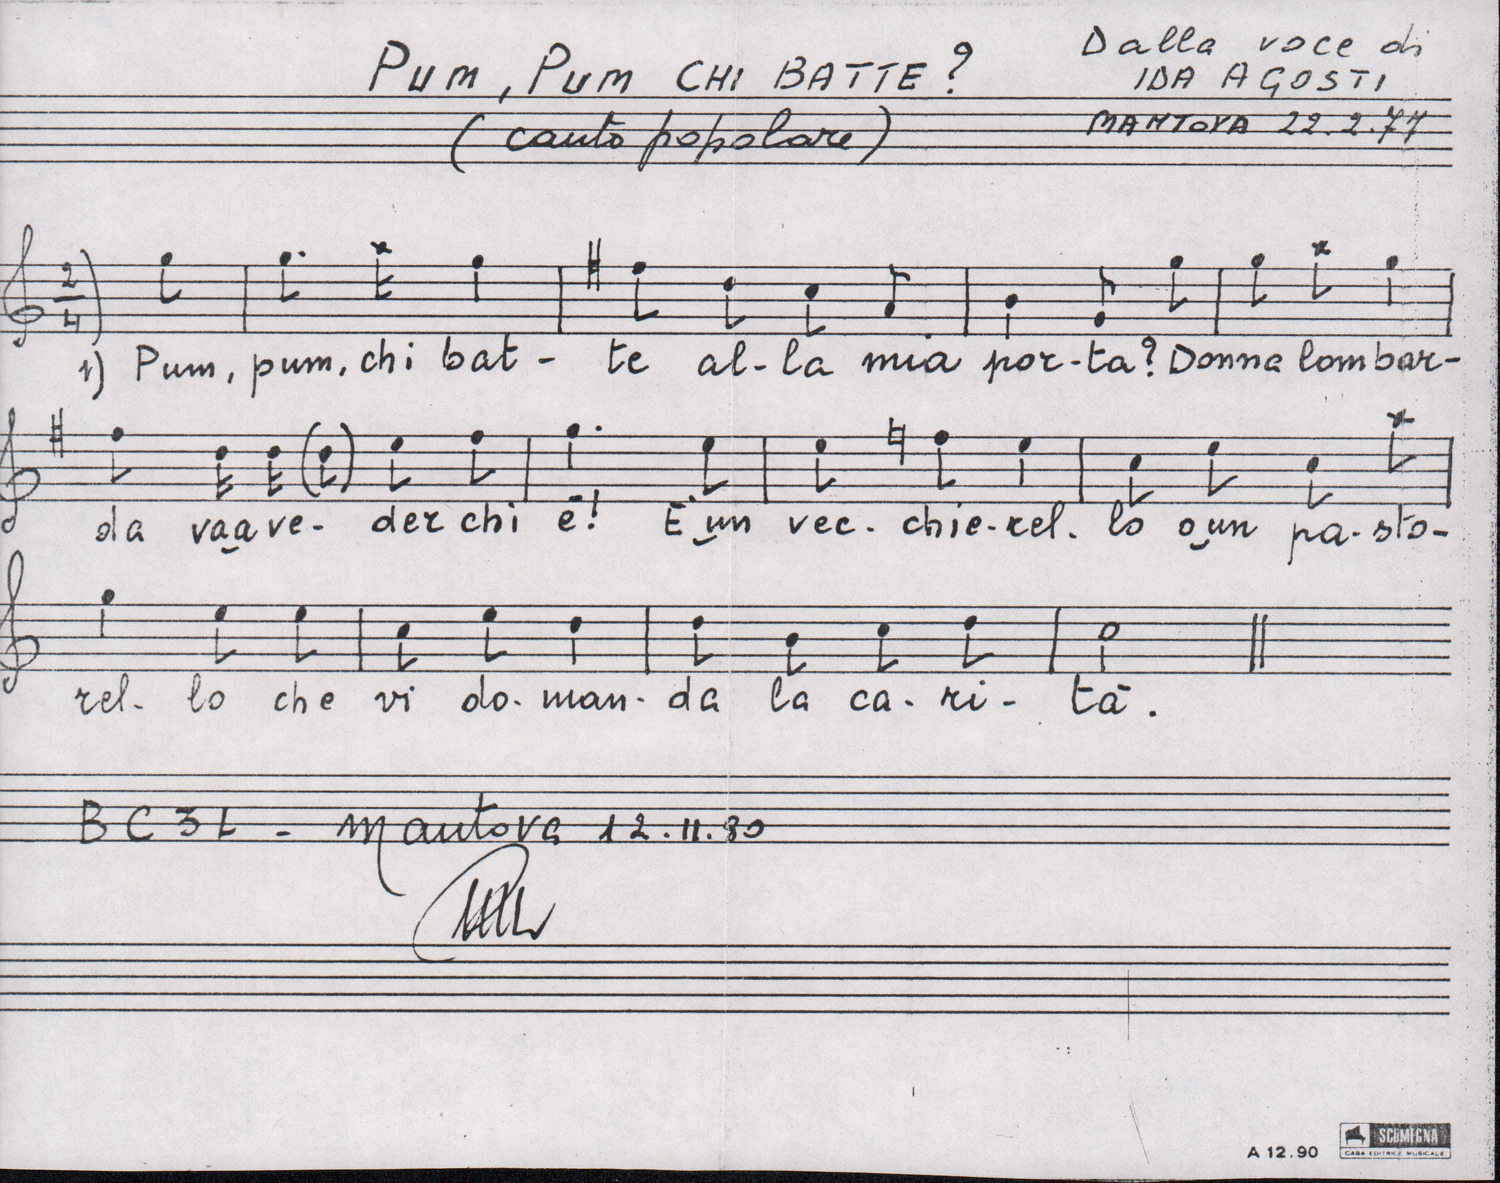 PUM, PUM CHI BATTE?
(canto popolare)
Dalla voce di
IDA AGOSTI
MANTOVA 22.2.77
2
4
1) Pum, pum, chi bat- te al-la mia por-ta? Donna lombar-
da vaa ve- der chi è! È un vec- chie-rel- lo o un pa-sto-
rel- lo che vi do-man-da la ca-ri-tà.
BC3L - Mantova 12.11.80
A 12.90
SCOMEGNA
CASA EDITRICE MUSICALE